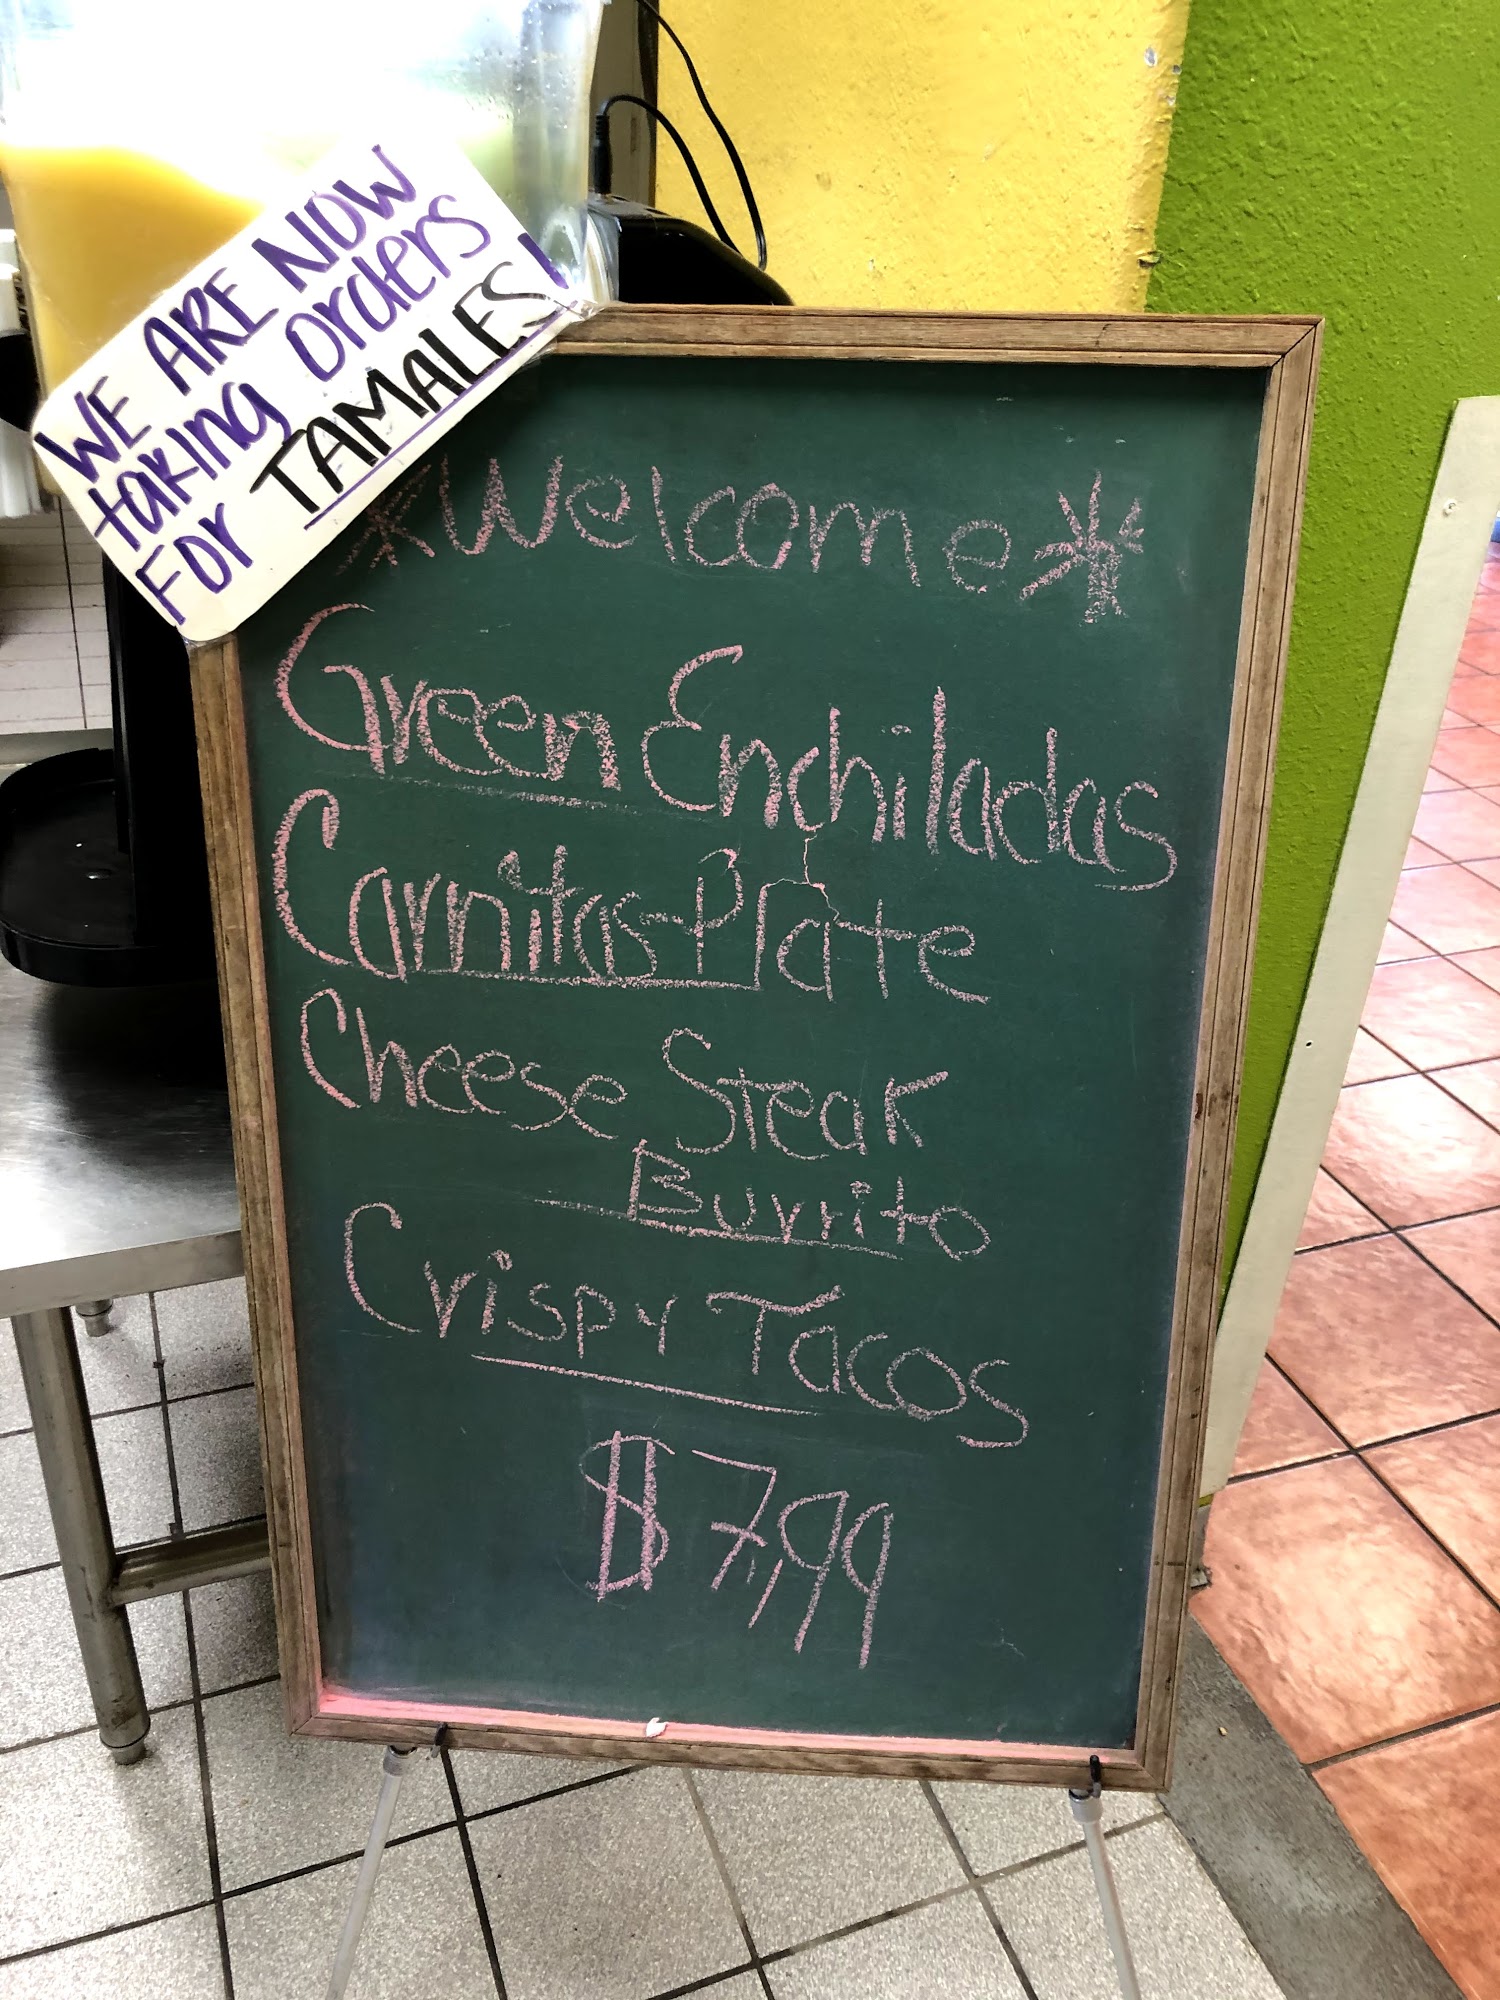 WE ARE NOW
taking orders
For TAMALES!
*Welcome*
Green Enchiladas
Carnitas-Plate
Cheese Steak
Burrito
Crispy Tacos
$7,99